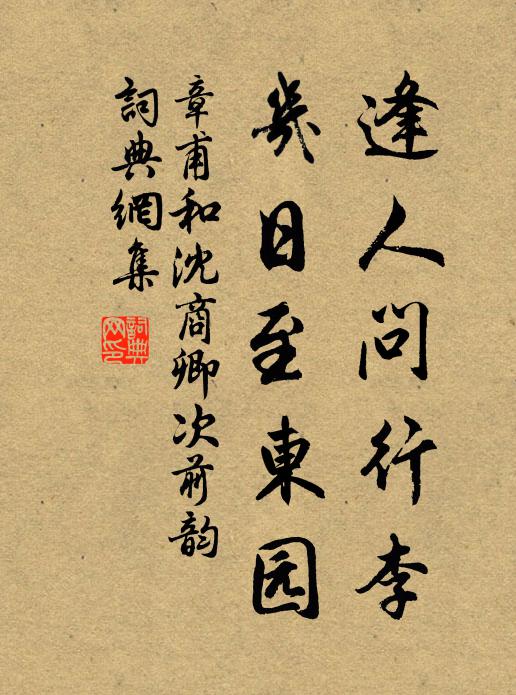 逢人问行李
几日至東园
章甫和沈商卿次前韵
詞典網集
詞典网印